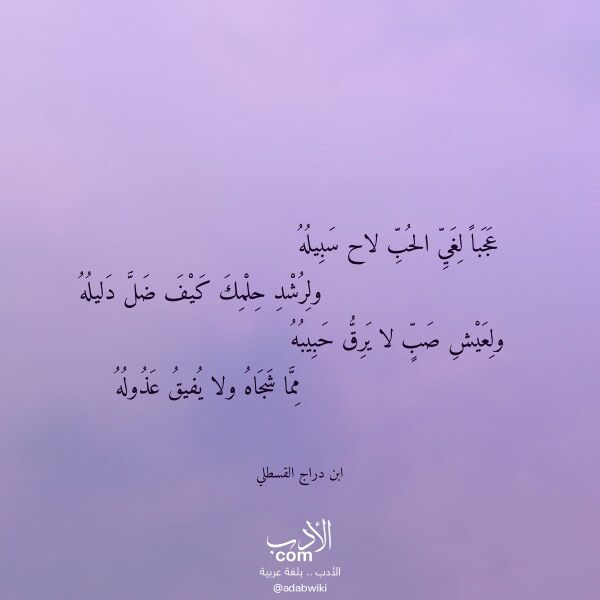 عَجَباً لِغَيِّ الحُبِّ لاح سَبِيلُهُ
ولِرُشْدِ حِلْمِكَ كَيْفَ ضَلَّ دَليلُهُ
ولِعَيْشِ صَبٍّ لا يَرِقُّ حَبِيبُهُ
مِمَّا شَجَاهُ ولا يُفيقُ عَذُولُهُ
ابن دراج القسطلي
الأدب
com
الأدب .. بلغة عربية
@adabwiki